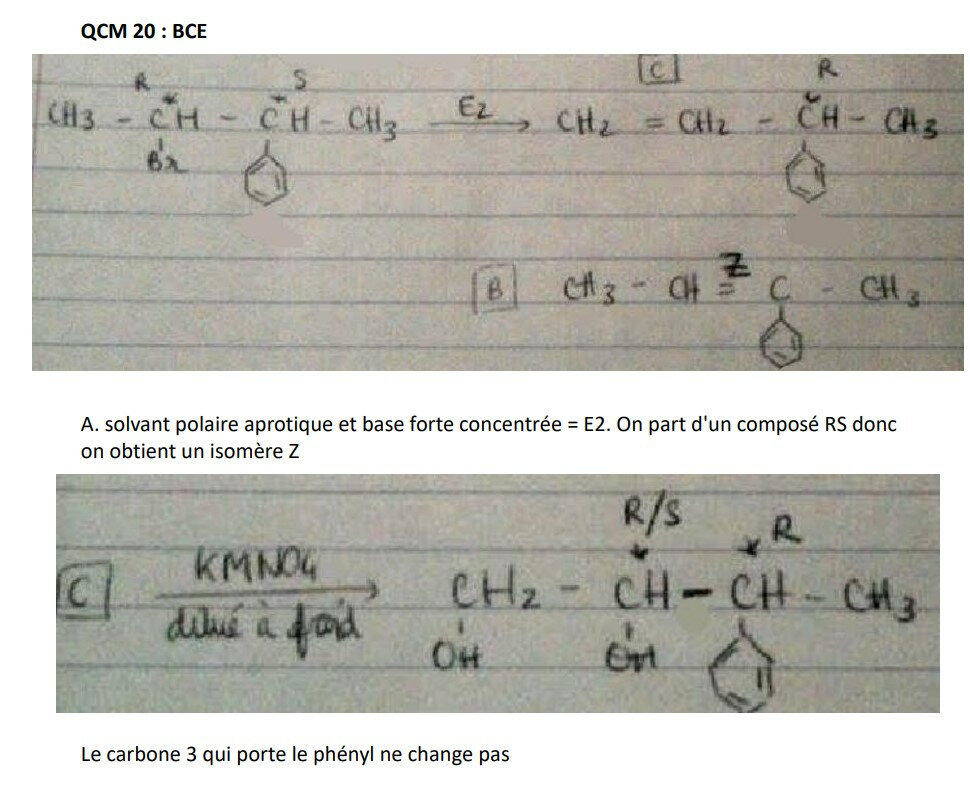 QCM 20 : BCE
R S C R
CH3 - CH - CH - CH3 E2 → CH2 = CH2 - CH - CH3
Br
B CH3 - CH = C - CH3
Z
A. solvant polaire aprotique et base forte concentrée = E2. On part d'un composé RS donc
on obtient un isomère Z
R/S R
C KMNO4 → CH2 - CH - CH - CH3
dilué à froid
OH OH
Le carbone 3 qui porte le phényl ne change pas